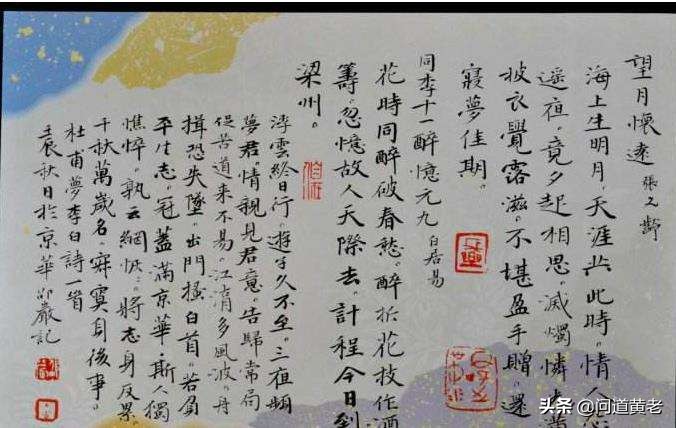 望月懷遠 張九齡
海上生明月。天涯共此時。情人怨
遥夜。竟夕起相思。滅燭憐光滿
披衣覺露滋。不堪盈手贈。還
寢夢佳期。
同李十一醉憶元九 白居易
花時同醉破春愁。醉折花枝作酒
籌。忽憶故人天際去。計程今日到
梁州。
浮雲終日行。遊子久不至。三夜頻
夢君。情親見君意。告歸常局
促。苦道来不易。江湖多風波。舟
楫恐失墜。出門搔白首。若負
平生志。冠蓋滿京華。斯人獨
憔悴。孰云網恢。將老身反累。
千秋萬歲名。寂寞身後事。
杜甫夢李白詩一首
秋日於京華 記
头条 @问道黄老